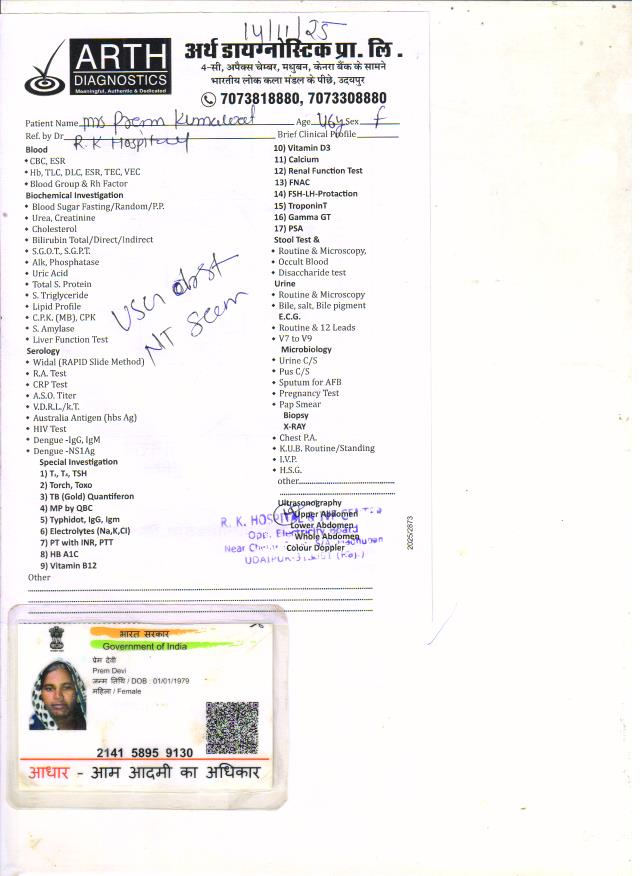 14/11/25
ARTH
DIAGNOSTICS
Meaningful, Authentic & Dedicated
अर्थ डायग्नोस्टिक प्रा. लि.
4-सी, अपैक्स चेम्बर, मधुबन, केनरा बैंक के सामने
भारतीय लोक कला मंडल के पीछे, उदयपुर
7073818880, 7073308880
Patient Name Mrs Prem Kumawat Age 46y Sex F
Ref. by Dr. R.K Hospital Brief Clinical Profile
Blood
CBC, ESR
Hb, TLC, DLC, ESR, TEC, VEC
Blood Group & Rh Factor
Biochemical Investigation
Blood Sugar Fasting/Random/P.P.
Urea, Creatinine
Cholesterol
Bilirubin Total/Direct/Indirect
S.G.O.T., S.G.P.T.
Alk, Phosphatase
Uric Acid
Total S. Protein
S. Triglyceride
Lipid Profile
C.P.K. (MB), CPK
S. Amylase
Liver Function Test
Serology
Widal (RAPID Slide Method)
R.A. Test
CRP Test
A.S.O. Titer
V.D.R.L./k.T.
Australia Antigen (hbs Ag)
HIV Test
Dengue -IgG, IgM
Dengue -NS1Ag
Special Investigation
1) T₃, T₄, TSH
2) Torch, Toxo
3) TB (Gold) Quantiferon
4) MP by QBC
5) Typhidot, IgG, Igm
6) Electrolytes (Na,K,Cl)
7) PT with INR, PTT
8) HB A1C
9) Vitamin B12
Other
10) Vitamin D3
11) Calcium
12) Renal Function Test
13) FNAC
14) FSH-LH-Protaction
15) TroponinT
16) Gamma GT
17) PSA
Stool Test &
Routine & Microscopy,
Occult Blood
Disaccharide test
Urine
Routine & Microscopy
Bile, salt, Bile pigment
E.C.G.
Routine & 12 Leads
V7 to V9
Microbiology
Urine C/S
Pus C/S
Sputum for AFB
Pregnancy Test
Pap Smear
Biopsy
X-RAY
Chest P.A.
K.U.B. Routine/Standing
I.V.P.
H.S.G.
other
Ultrasonography
Upper Abdomen
Lower Abdomen
Whole Abdomen
Colour Doppler
USG
NT Scan
R. K. HOSPITAL
Opp. Electricity Board
UDAIPUR
2025/2873
भारत सरकार
Government of India
प्रेम देवी
Prem Devi
जन्म तिथि / DOB : 01/01/1979
महिला / Female
2141 5895 9130
आधार - आम आदमी का अधिकार